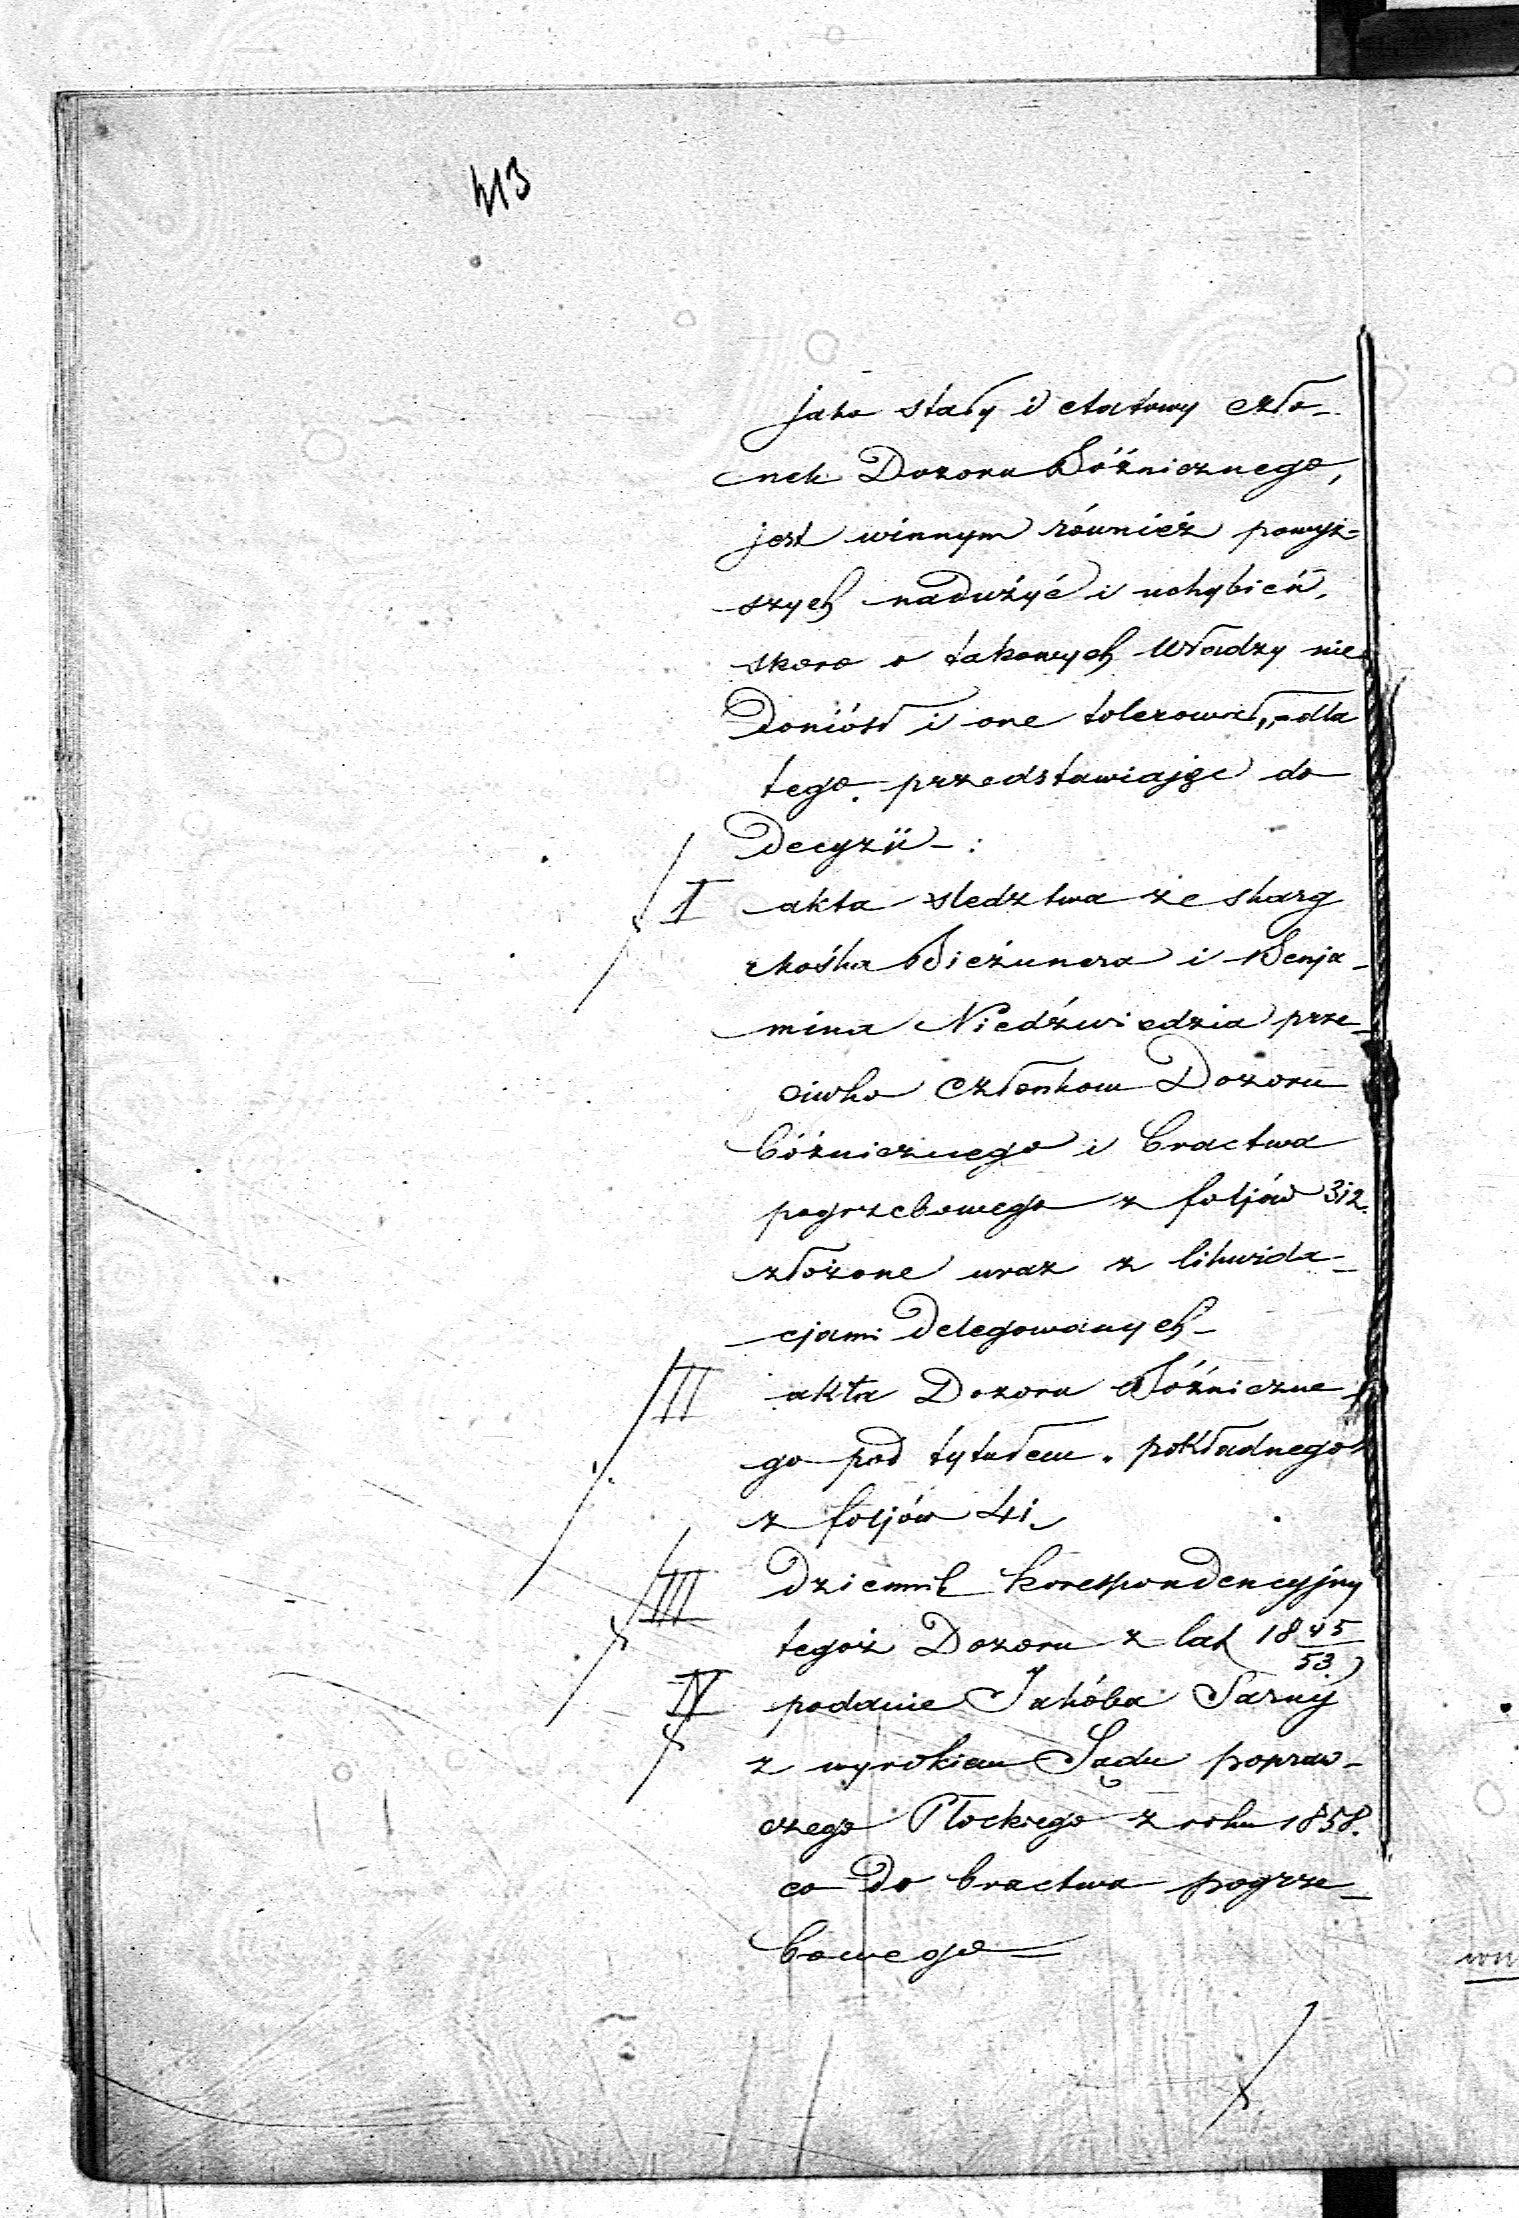 413
jako stały i etatowy czło-
nek Dozoru Bóźnicznego,
jest winnym również powyż-
szych nadużyć i uchybień,
skoro o takowych Władzy nie
doniósł i one tolerował, - dla
tego przedstawiając do
Decyzii - :
I akta sledztwa ze skarg
Mośka Bieżunera i Benja-
mina Niedźwiedzia prze-
ciwko Członkom Dozoru
bóżnicznego i bractwa
pogrzebowego z foljów 312.
złożone wraz z likwida-
cjami Delegowanych -
II akta Dozoru Bóżniczne
go pod tytułem pokładnego
z foljów 41,
III Dziennik korespondencyjny
tegoż Dozoru z lat 18 45/53
IV podanie Jakóba Sarny
z wyrokiem Sądu popraw-
czego Płockiego z roku 1858.
co do bractwa pogrze-
bowego